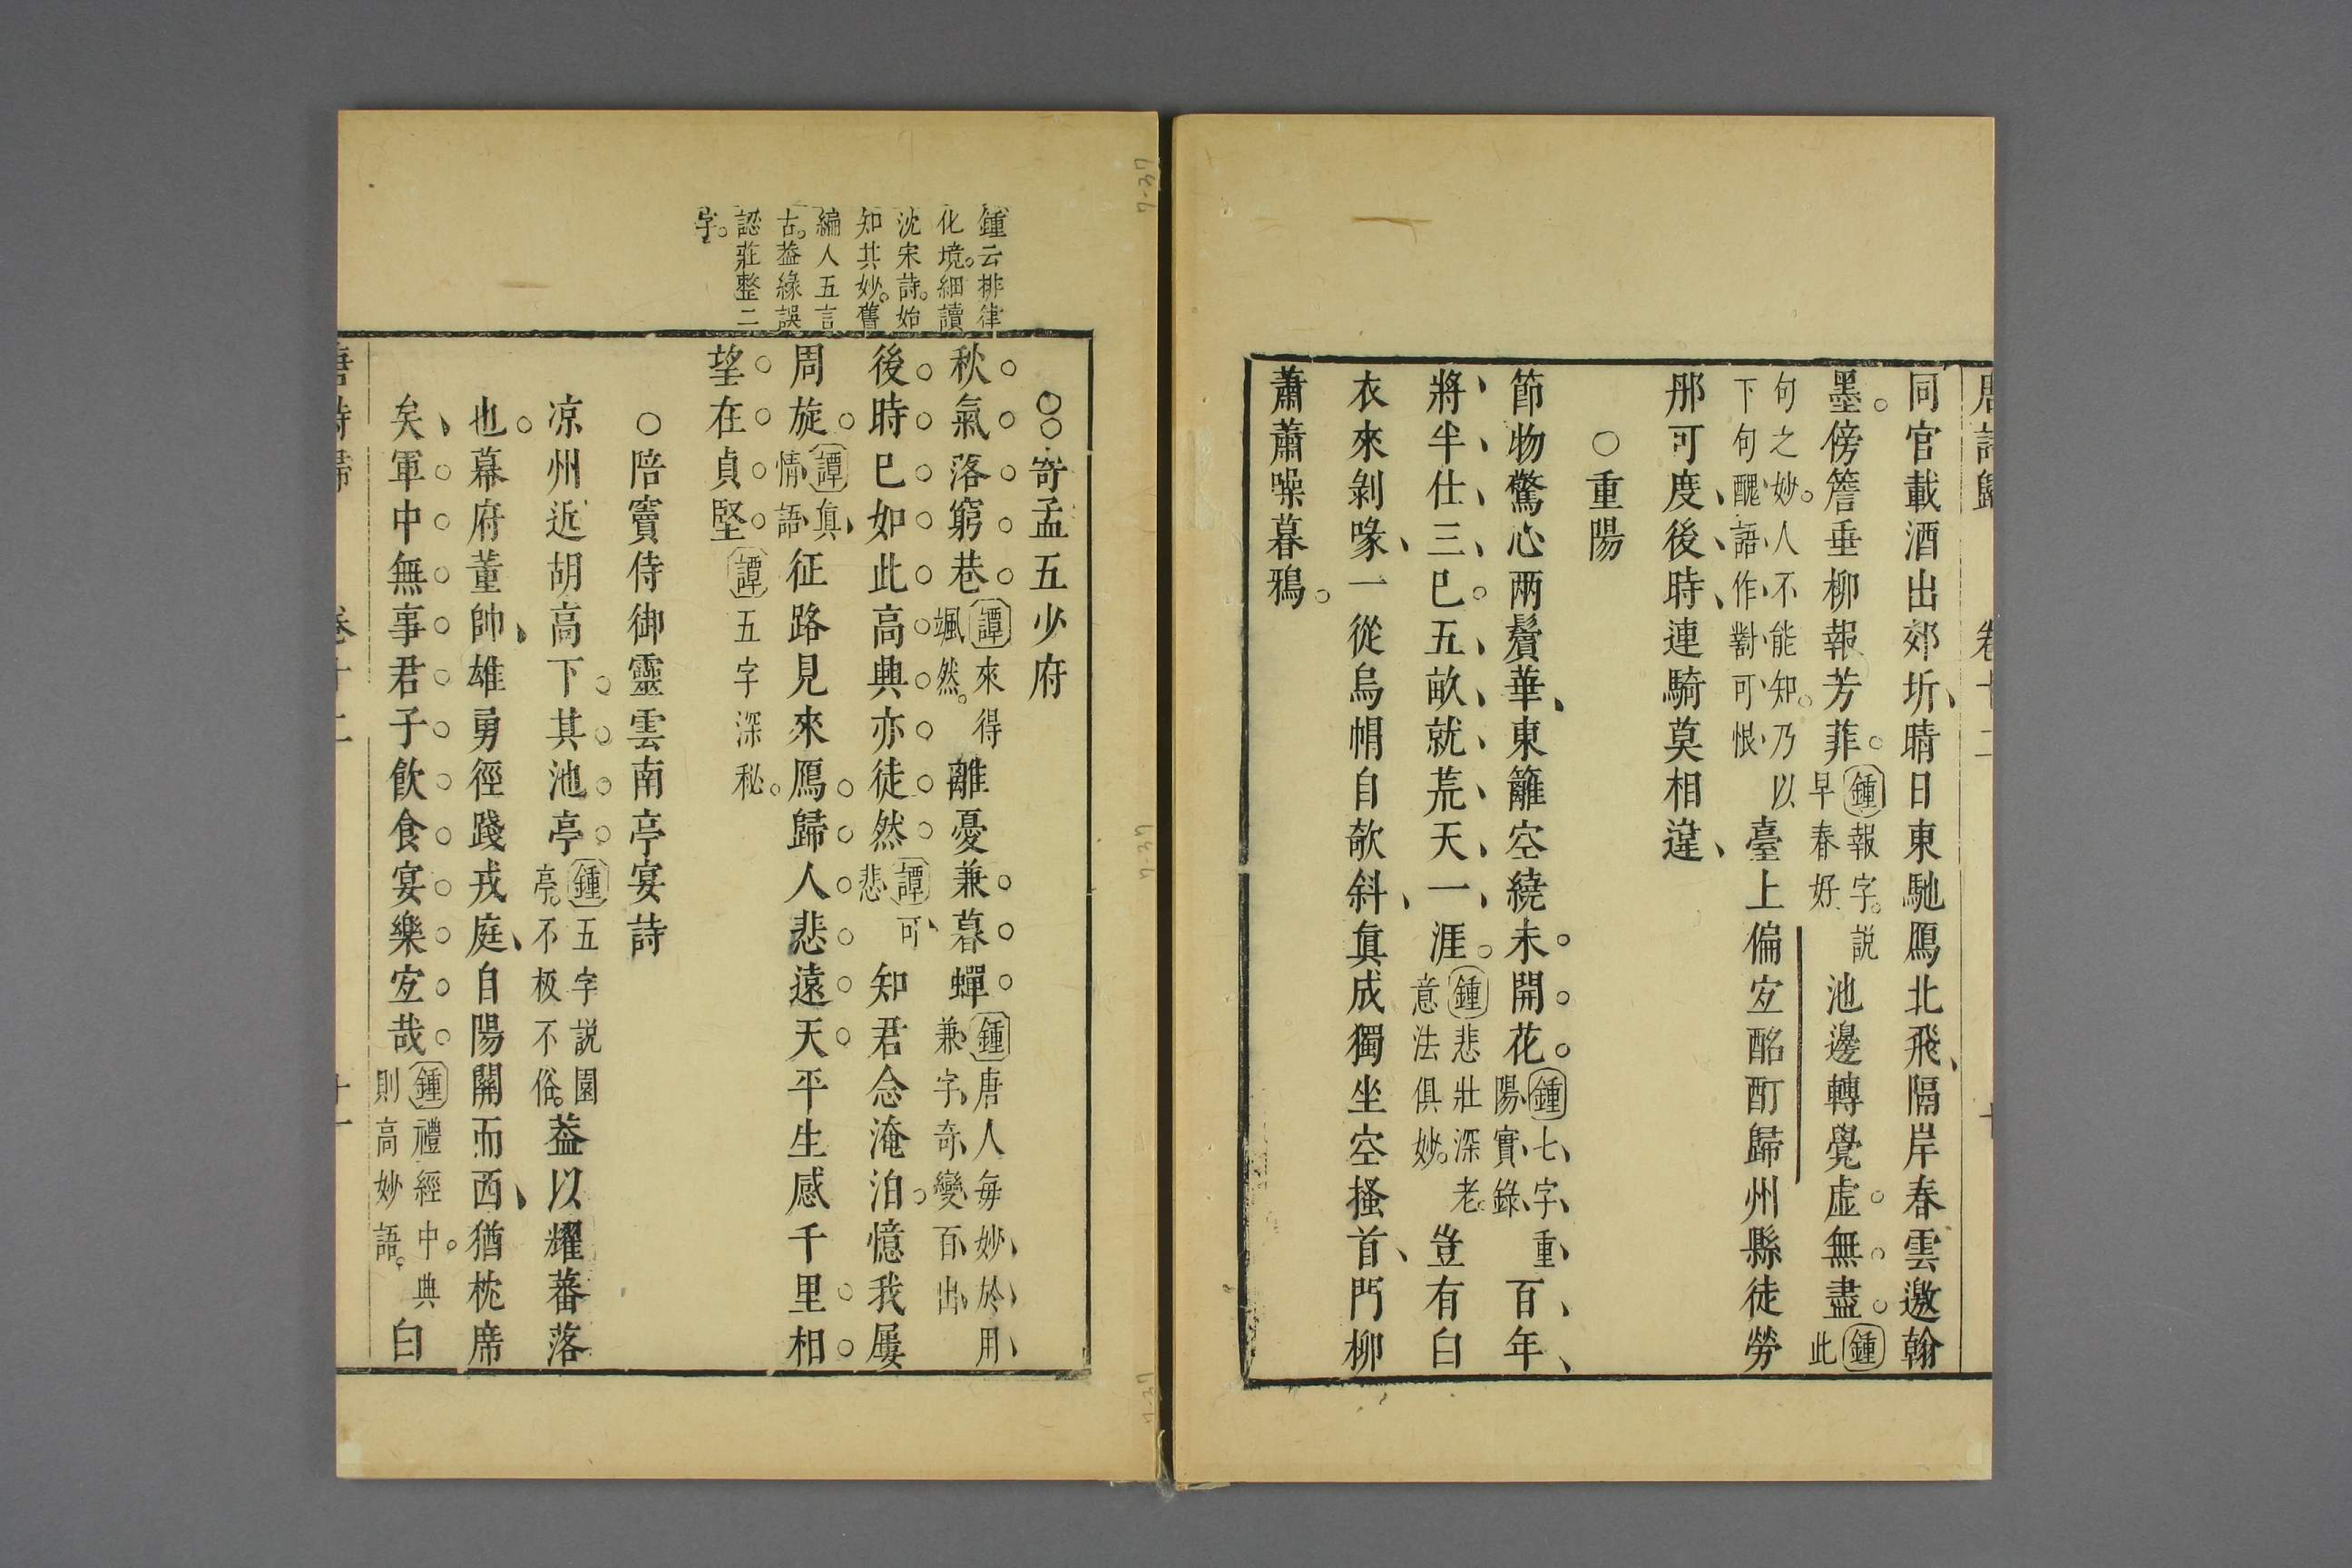 唐詩歸 卷十二 十
同官載酒出郊圻晴日東馳鴈北飛隔岸春雲邀翰
墨傍簷垂柳報芳菲鍾報字說早春好池邊轉覺虛無盡鍾此
句之妙人不能知乃以下句醜語作對可恨臺上偏宐酩酊歸州縣徒勞
那可度後時連騎莫相違
○重陽
節物驚心兩鬢華東籬空繞未開花鍾七字重陽實錄百年
將半仕三已五畝就荒天一涯鍾悲壯深老意法俱妙豈有白
衣來剝啄一從烏帽自欹斜眞成獨坐空搔首門柳
蕭蕭噪暮鴉
鍾云排律
化境細讀
沈宋詩始
知其妙舊
編人五言
古葢緣誤
認莊整二
字
○○寄孟五少府
秋氣落窮巷譚來得颯然離憂兼暮蟬鍾唐人每妙於用兼字奇變百出
後時已如此高興亦徒然譚可悲知君念淹泊憶我屢
周旋譚眞情語征路見來鴈歸人悲遠天平生感千里相
望在貞堅譚五字深秘
○陪竇侍御靈雲南亭宴詩
凉州近胡高下其池亭鍾五字說園亭不板不俗葢以耀蕃落
也幕府董帥雄勇徑踐戎庭自陽關而西猶枕席
矣軍中無事君子飲食宴樂宐哉鍾禮經中典則高妙語白
唐詩歸 卷十二 十一